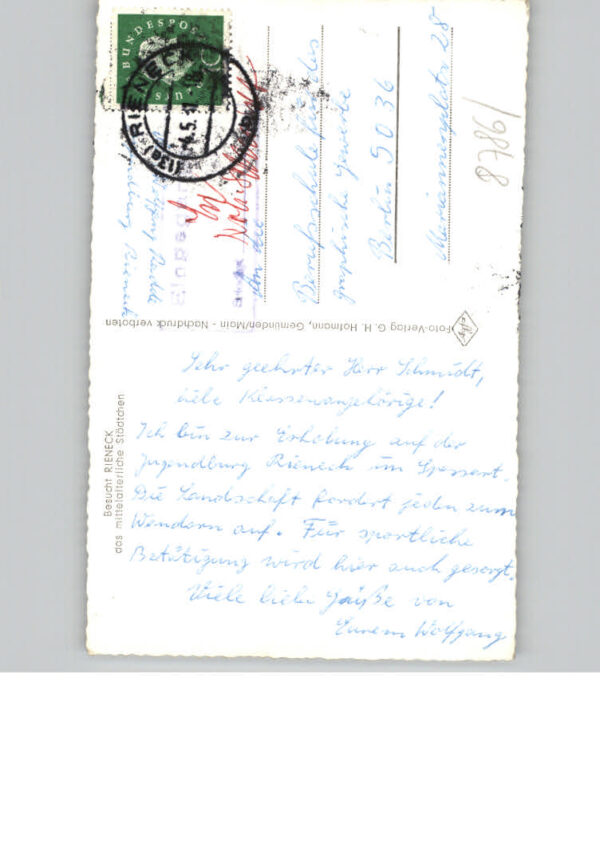 Besucht RIENECK
das mittelalterliche Städtchen
Sehr geehrter Herr Schmidt,
liebe Klassenangehörige!
Ich bin zur Erholung auf der
Jugendburg Rieneck im Spessart.
Die Landschaft fordert jeden zum
Wandern auf. Für sportliche
Betätigung wird hier auch gesorgt.
Viele liebe Grüße von
Eurem Wolfgang
Foto-Verlag G. H. Hofmann, Gemünden/Main - Nachdruck verboten
BUNDESPOST
(13a) RIENECK
Wolfgang
Jugendburg Rieneck
An die
Berufsschule für das
graphische Gewerbe
Berlin SO 36
Mariannenplatz 28
9878